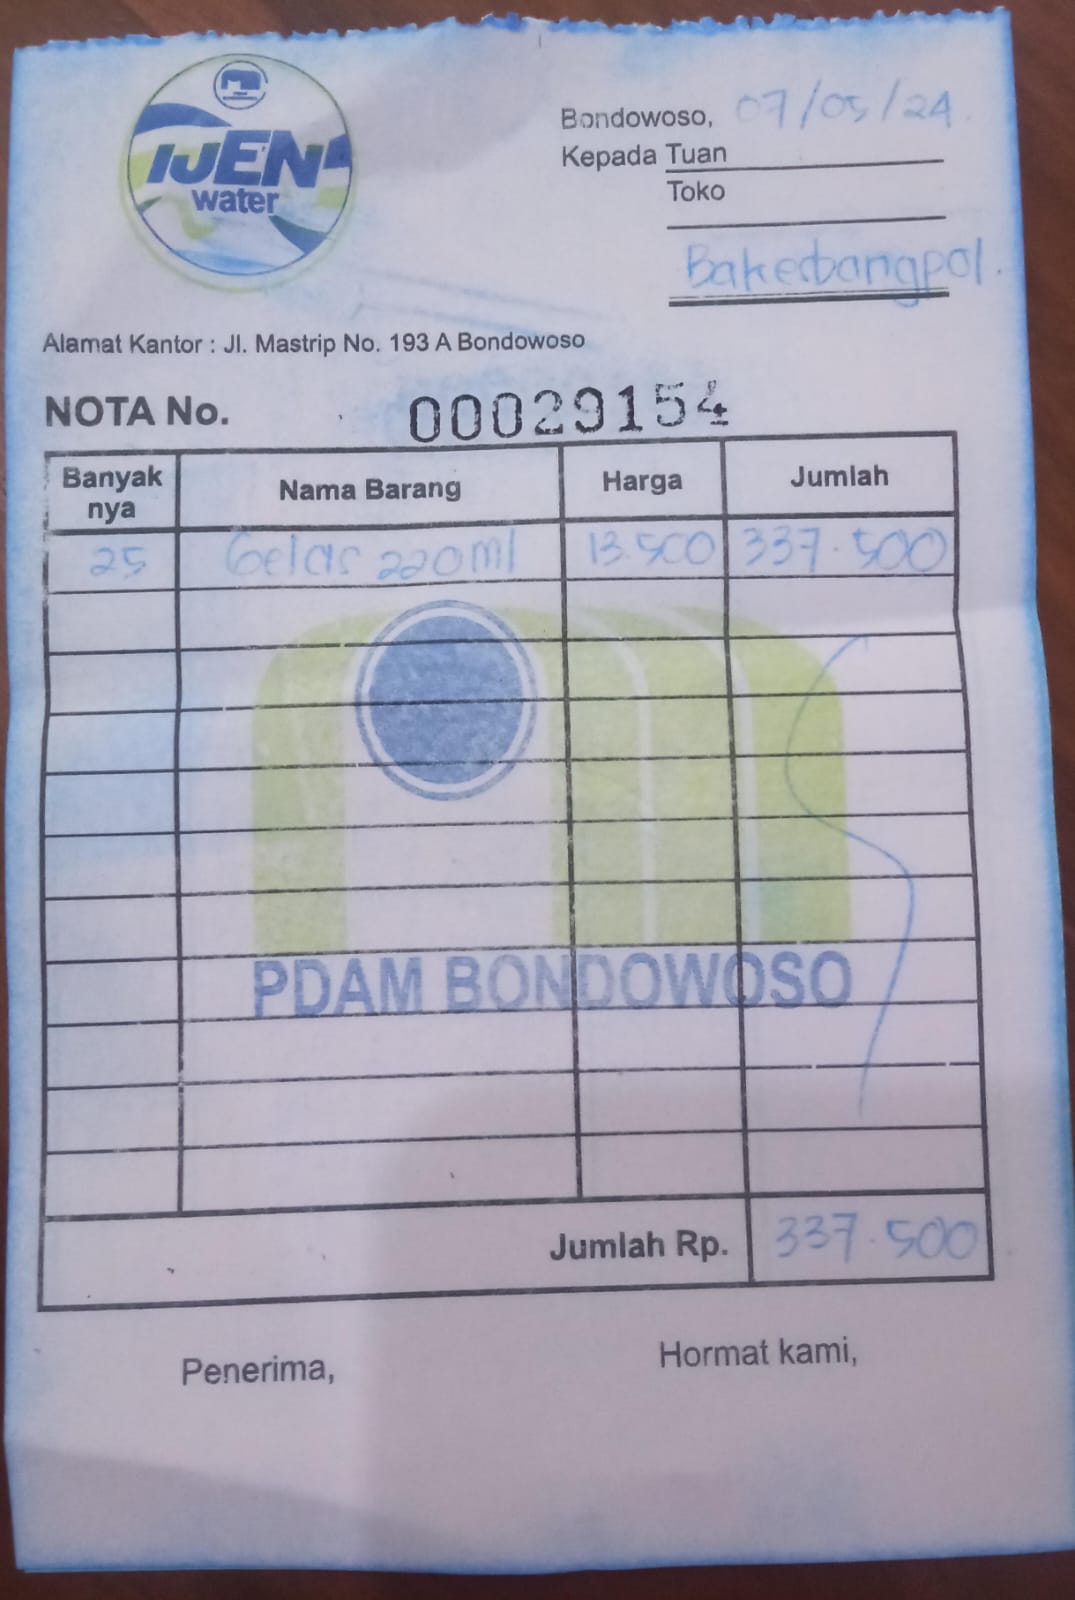 IJEN
water
Bondowoso, 07/05/24.
Kepada Tuan
Toko
Bakesbangpol.
Alamat Kantor : Jl. Mastrip No. 193 A Bondowoso
NOTA No. 00029154
Banyak nya Nama Barang Harga Jumlah
25 Gelas 220 ml 13.500 337.500
PDAM BONDOWOSO
Jumlah Rp. 337.500
Penerima, Hormat kami,